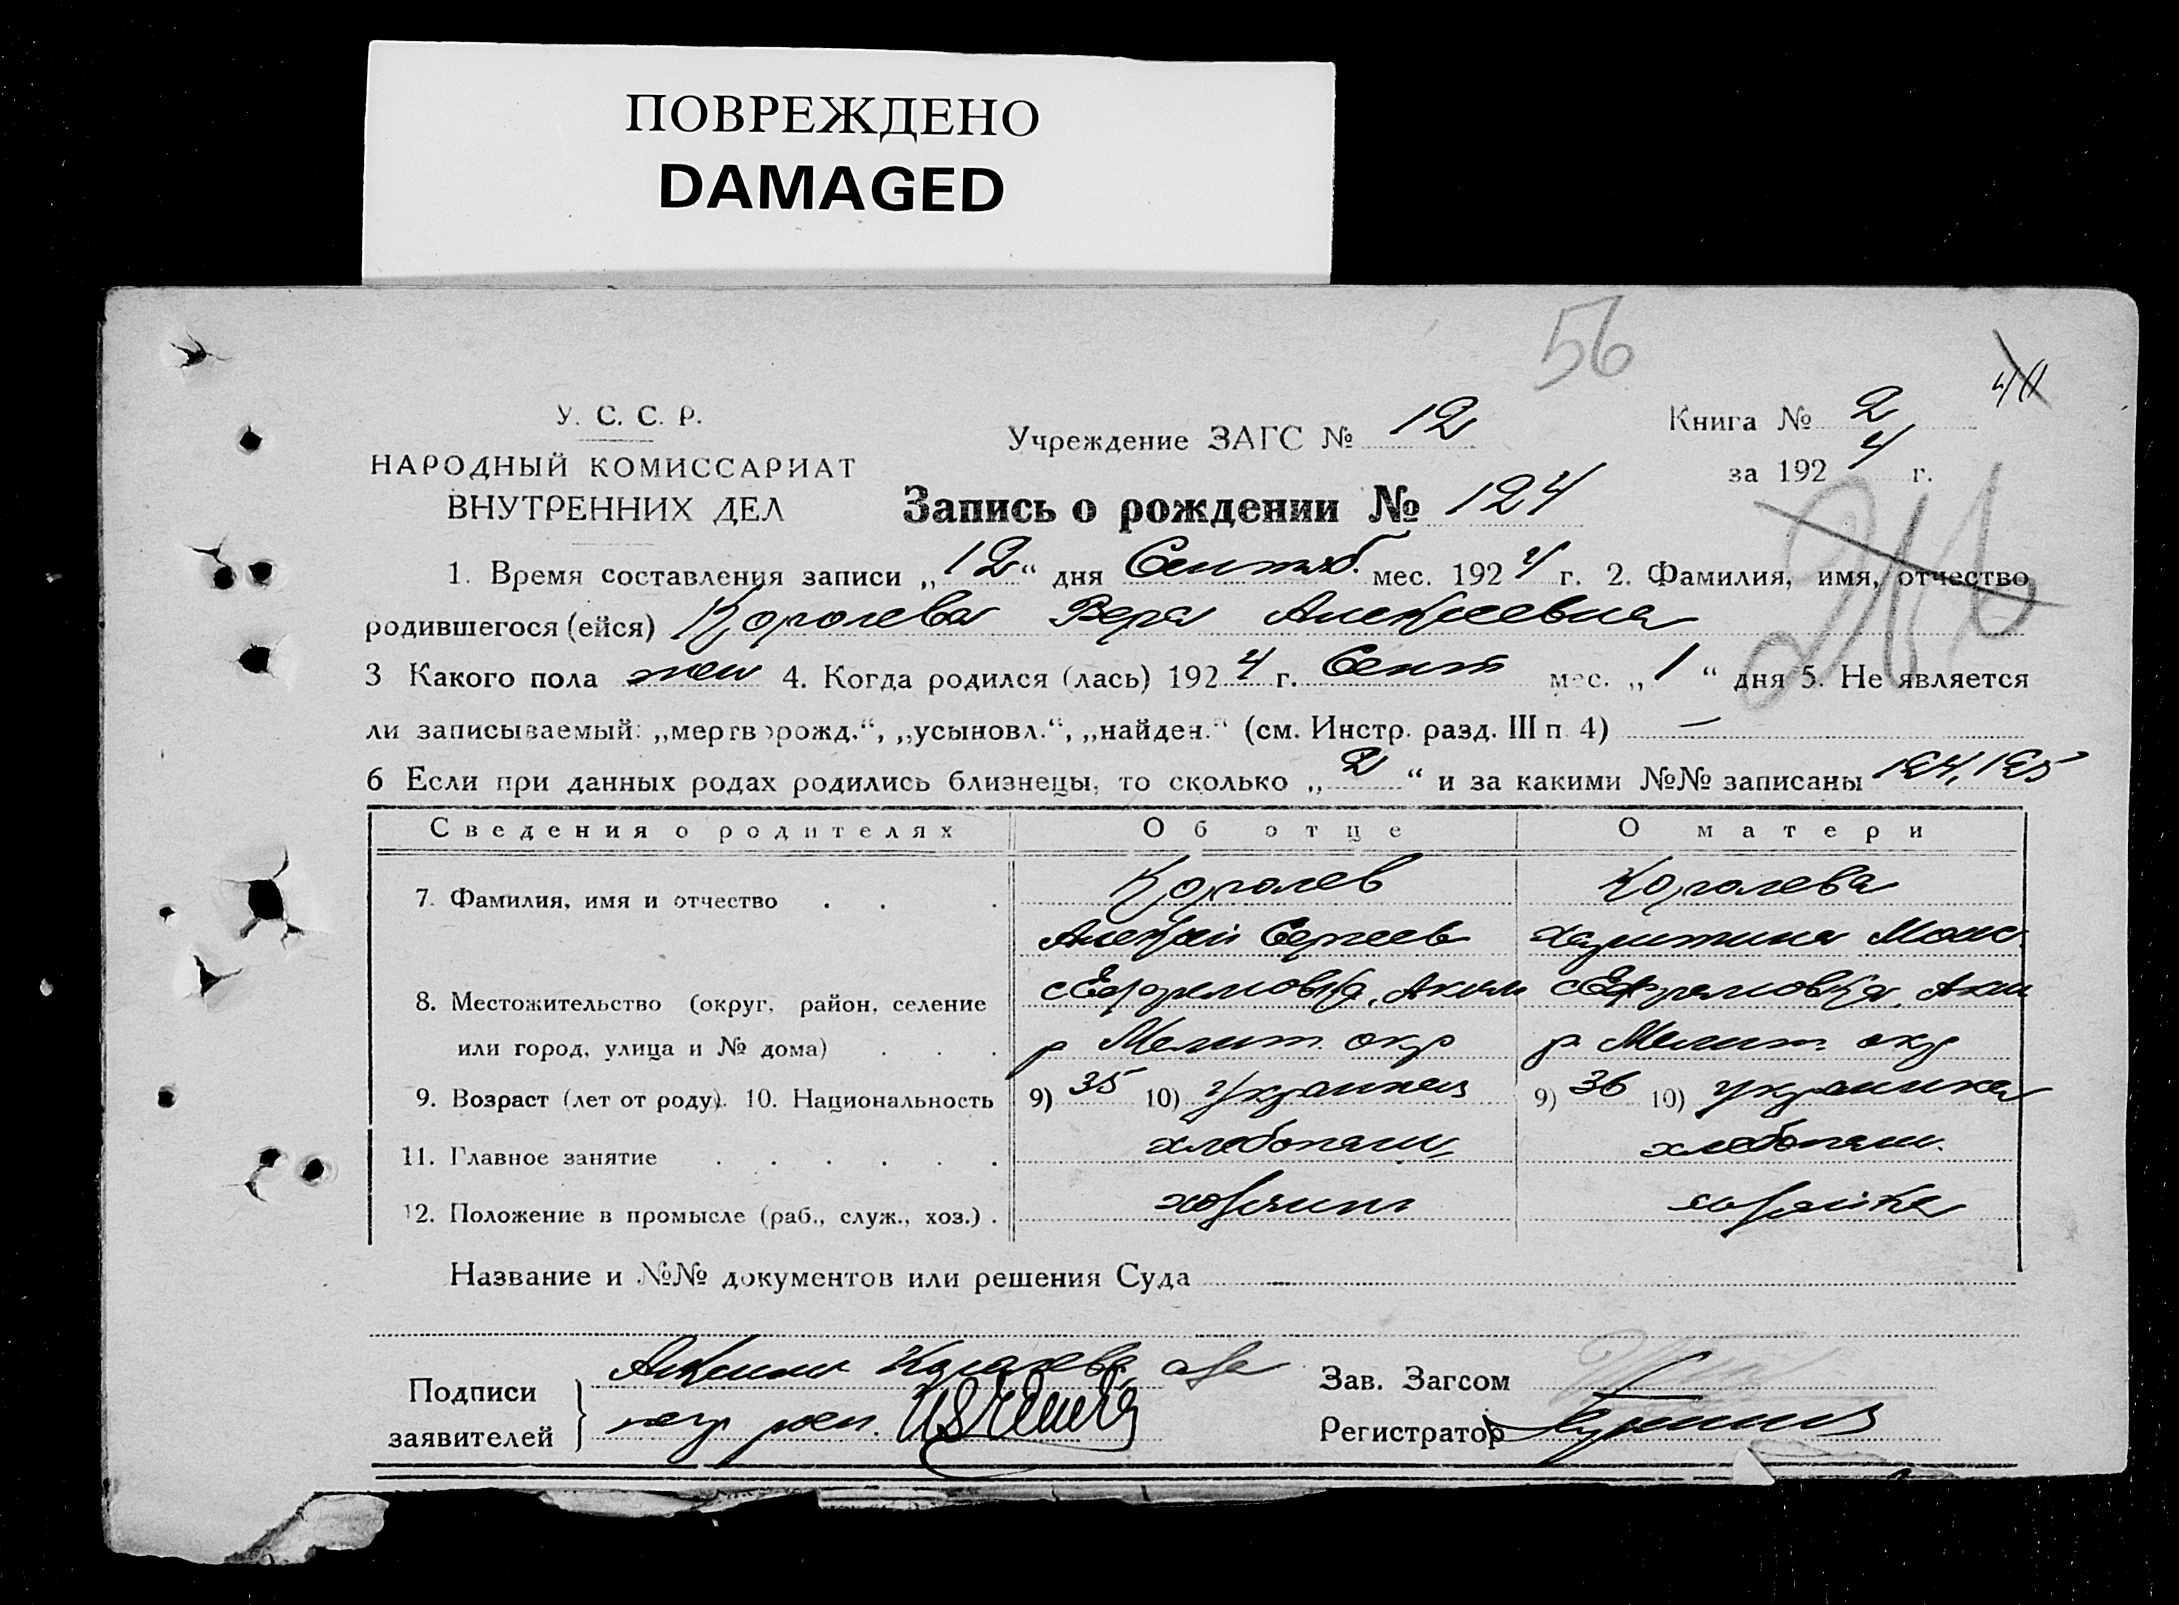 ПОВРЕЖДЕНО
DAMAGED
56
У. С. С. Р.
НАРОДНЫЙ КОМИССАРИАТ
ВНУТРЕННИХ ДЕЛ
Учреждение ЗАГС № 12
Книга № 2
за 1924 г.
Запись о рождении № 124
1. Время составления записи „12“ дня Сентяб. мес. 1924 г. 2. Фамилия, имя, отчество
родившегося (ейся) Королева Вера Алексеевна
3 Какого пола жен 4. Когда родился (лась) 1924 г. Сент мес. „1“ дня 5. Не является
ли записываемый: „мертворожд.“, „усыновл.“, „найден.“ (см. Инстр. разд. III п. 4) —
6 Если при данных родах родились близнецы, то сколько „2“ и за какими №№ записаны 124, 125
Сведения о родителях Об отце О матери
7. Фамилия, имя и отчество . . . Королев Королева
Алексей Сергеев Харитина Моис.
8. Местожительство (округ, район, селение с Ефремовка, Аким с Ефремовка, Аким
или город, улица и № дома) . . . р Мелит. окр р. Мелит. окр
9. Возраст (лет от роду). 10. Национальность 9) 35 10) Украинец 9) 36 10) украинка
11. Главное занятие . . . . . . хлебопаш, хлебопаш.
12. Положение в промысле (раб., служ., хоз.) . хозяин хозяйка
Название и №№ документов или решения Суда —
Подписи
заявителей
Королева
негр расп.
Зав. Загсом
Регистратор